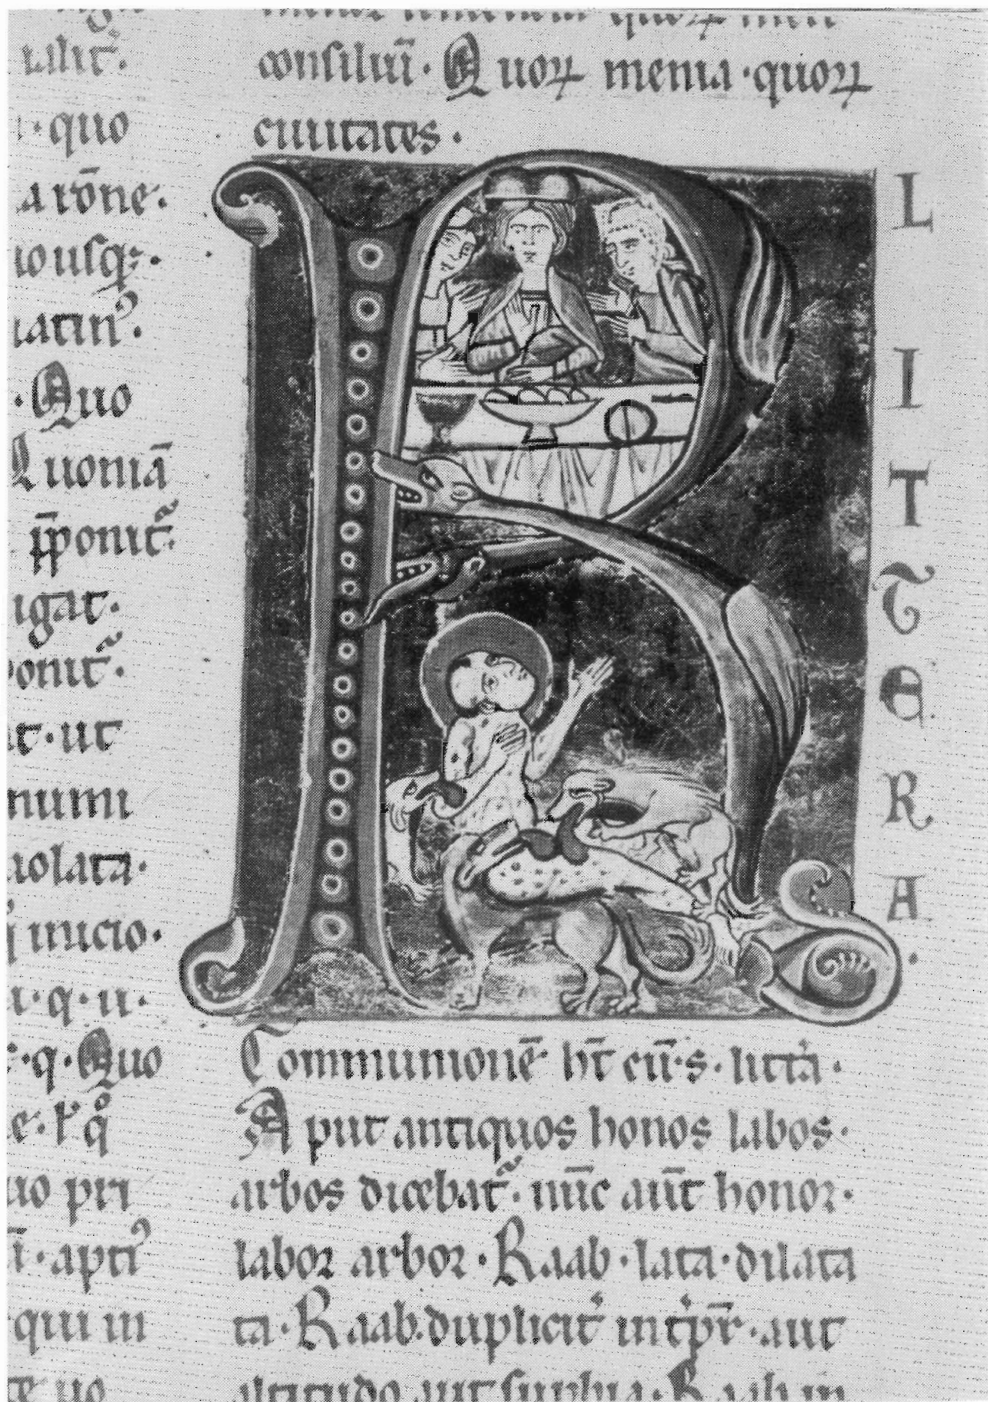 ualit᷑.
· quo
a rōne·
uo usq;·
latin᾽·
· Quo
Quoniā
p̄ponit᷑·
igat·
ponit᷑·
at · ut
numi
uolata·
nuncio·
a · q · u ·
· q · Quo
e · ł q̊
uo pri
ī · apti᾽
qui in
te uo
consiliū · Quoꝝ menia · quoꝝ
ciuitates ·
R
LITTERA·
Communionē hт̄ cū · s · litt̾a ·
Aput antiquos honos labos·
arbos dicebat᷑ · nūc aūt honor·
labor arbor · Raab · lata · dilata
ta · Raab duplicit̾ int̾p̄r̄ · aut
altitudo aut supbia · Raab in